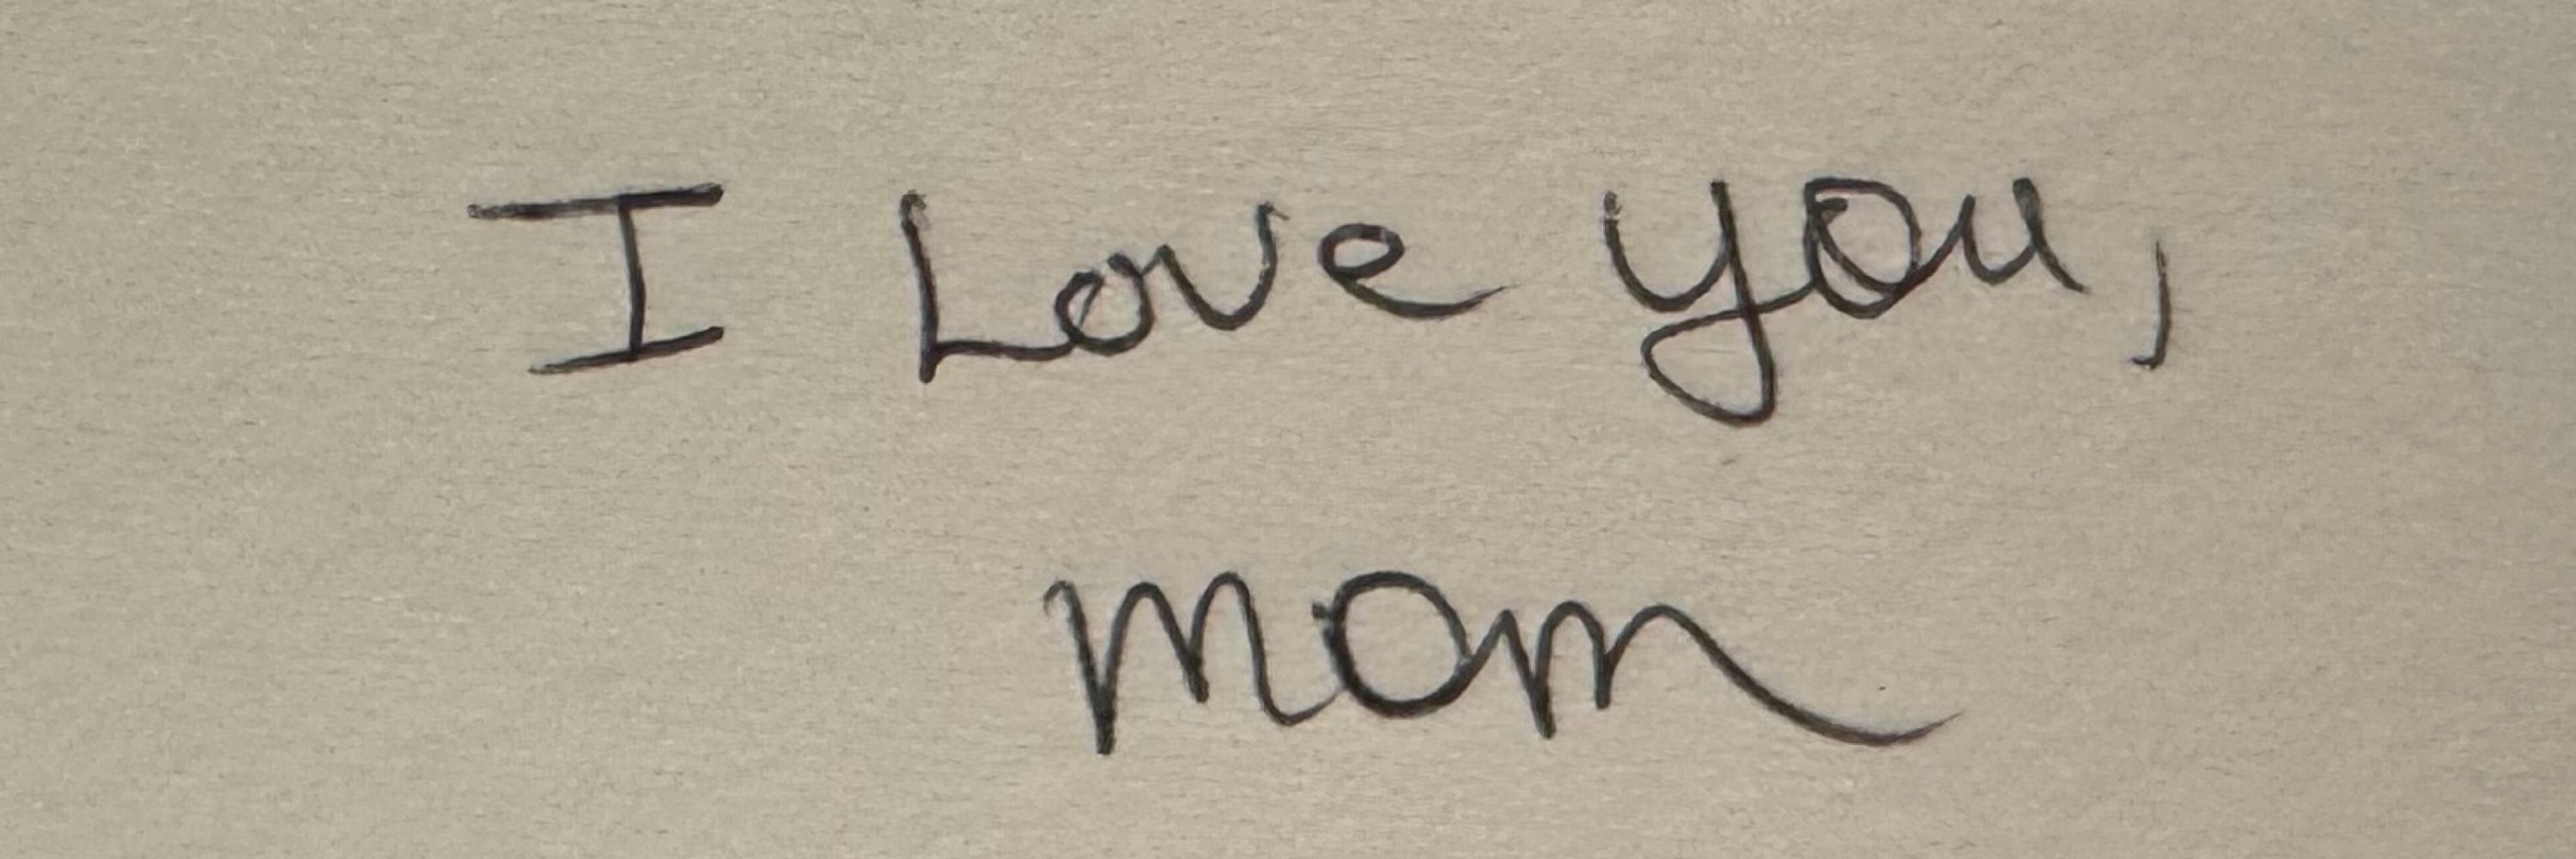 I Love you,
mom